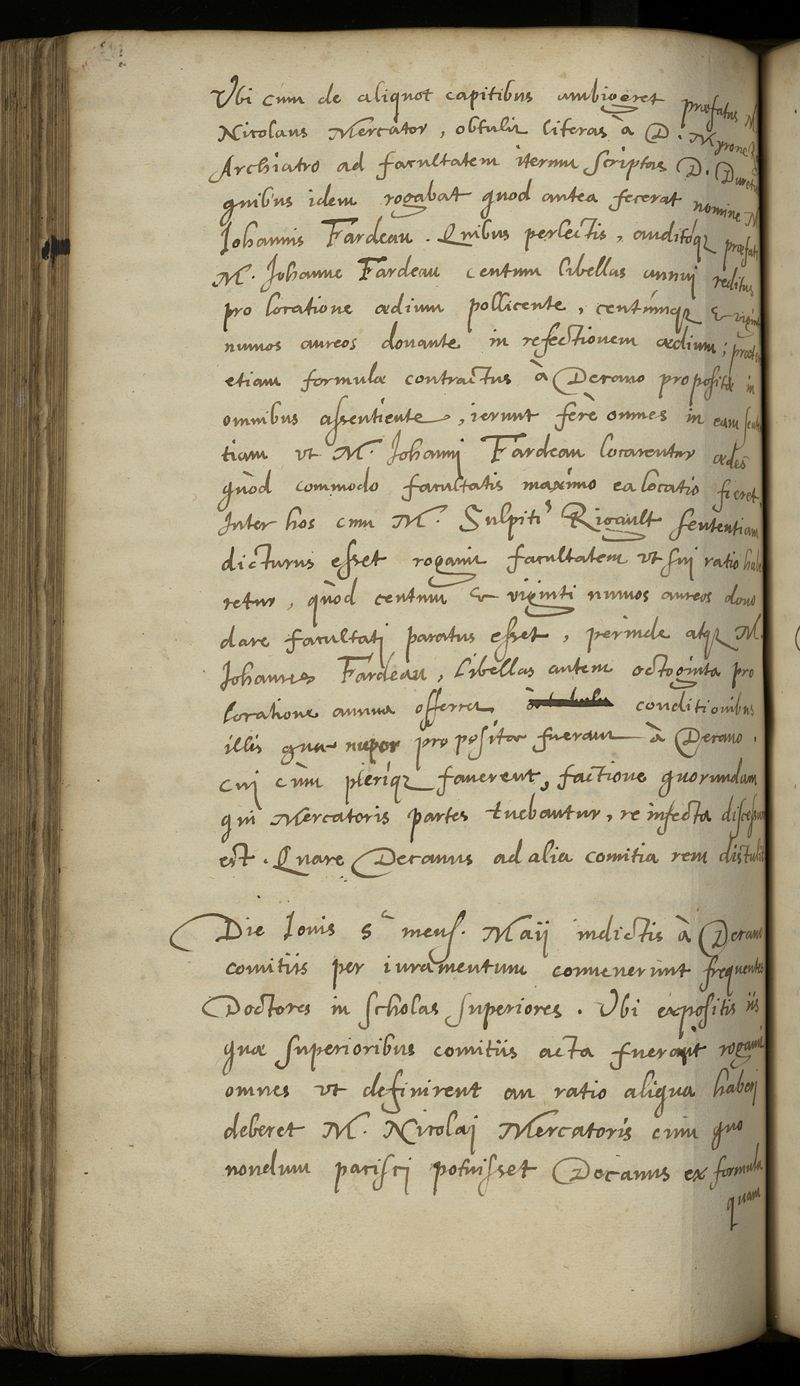 Ubi cum de aliquot capitibus ambigeret præfatus M.
Nicolaus Mercator, obtulit literas à D. Myrone
Archiatro ad facultatem iterum scriptas D. Dureti
quibus idem rogabat quod antea fecerat nomine M.
Johannis Fardeau. Quibus perlectis, auditoq; præfato
M. Johanne Fardeau centum libellas annui reditus
pro locatione ædium pollicente, centúmq; & viginti
numos aureos donante in refectionem ædium;
etiam formulæ contractus à Decano propositæ in
omnibus assentiente, ierunt ferè omnes in eam senten
tiam ut M. Johanni Fardeau locarentur ædes
quòd commodo facultatis maximo ea locatio fieret.
Inter hos cum M. Sulpiti9 Rigault sententiam
dicturus esset rogavit facultatem ut sui ratio habe
retur, quòd centum & viginti numos aureos dono
dare facultati paratus esset, perinde atq; M.
Johannes Fardeau, libellas autem octoginta pro
locatione annua offerret, conditionibus
illis quæ nuper propositæ fuerant à Decano.
cui cùm pleríq; faverent, factione quorundam
qui Mercatoris partes tuebantur, re infecta discessum
est. Quare Decanus ad alia comitia rem distulit
Die Iovis 5a mens. Maij indictis à Decano
comitiis per iuramentum convenerunt frequentes
Doctores in scholas superiores. Ubi expositis iis
quæ superioribus comitiis acta fuerant rogavit
omnes ut definirent an ratio aliqua haberi
deberet M. Nicolai Mercatoris cum quo
nondum pacisci potuisset Decanus ex formula
quam